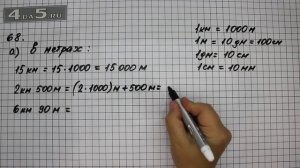 4da5.ru
68.
а) В метрах:
15 км = 15·1000 = 15 000 м
2 км 500 м = (2·1000) м + 500 м =
6 км 90 м =
1 км = 1000 м
1 м = 10 дм = 100 см
1 дм = 10 см
1 см = 10 мм